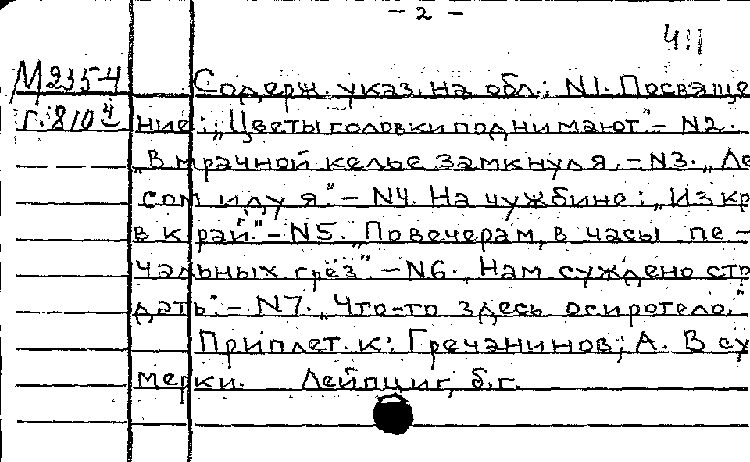 - 2 -
М 235-4
Содерж. указ. на обл.: N1. Посвяще
г. 810
ние: „Цветы головки поднимают" - N2.
„В мрачной келье замкнуля. - N3. „Ле
сом иду я." - N4. На чужбине: „Из кр
в край." - N5. „По вечерам, в часы пе-
чальных грёз". - N6. „Нам суждено стр
дать". - N7. „Что-то здесь осиротело."
Приплет. к: Гречанинов, А. В су
мерки. Лейпциг, б.г.